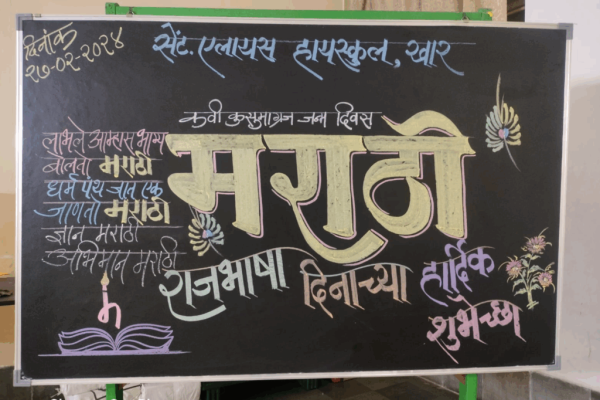 दिनांक
२७-०२-२०२४
सेंट. एलायस हायस्कुल, खार
कवी कुसुमाग्रज जन्म दिवस
लाभले आम्हास भाग्य
बोलतो मराठी
धर्म पंथ जात एक
जाणतो मराठी
ज्ञान मराठी
अभिमान मराठी
मराठी
राजभाषा दिनाच्या हार्दिक
शुभेच्छा
म